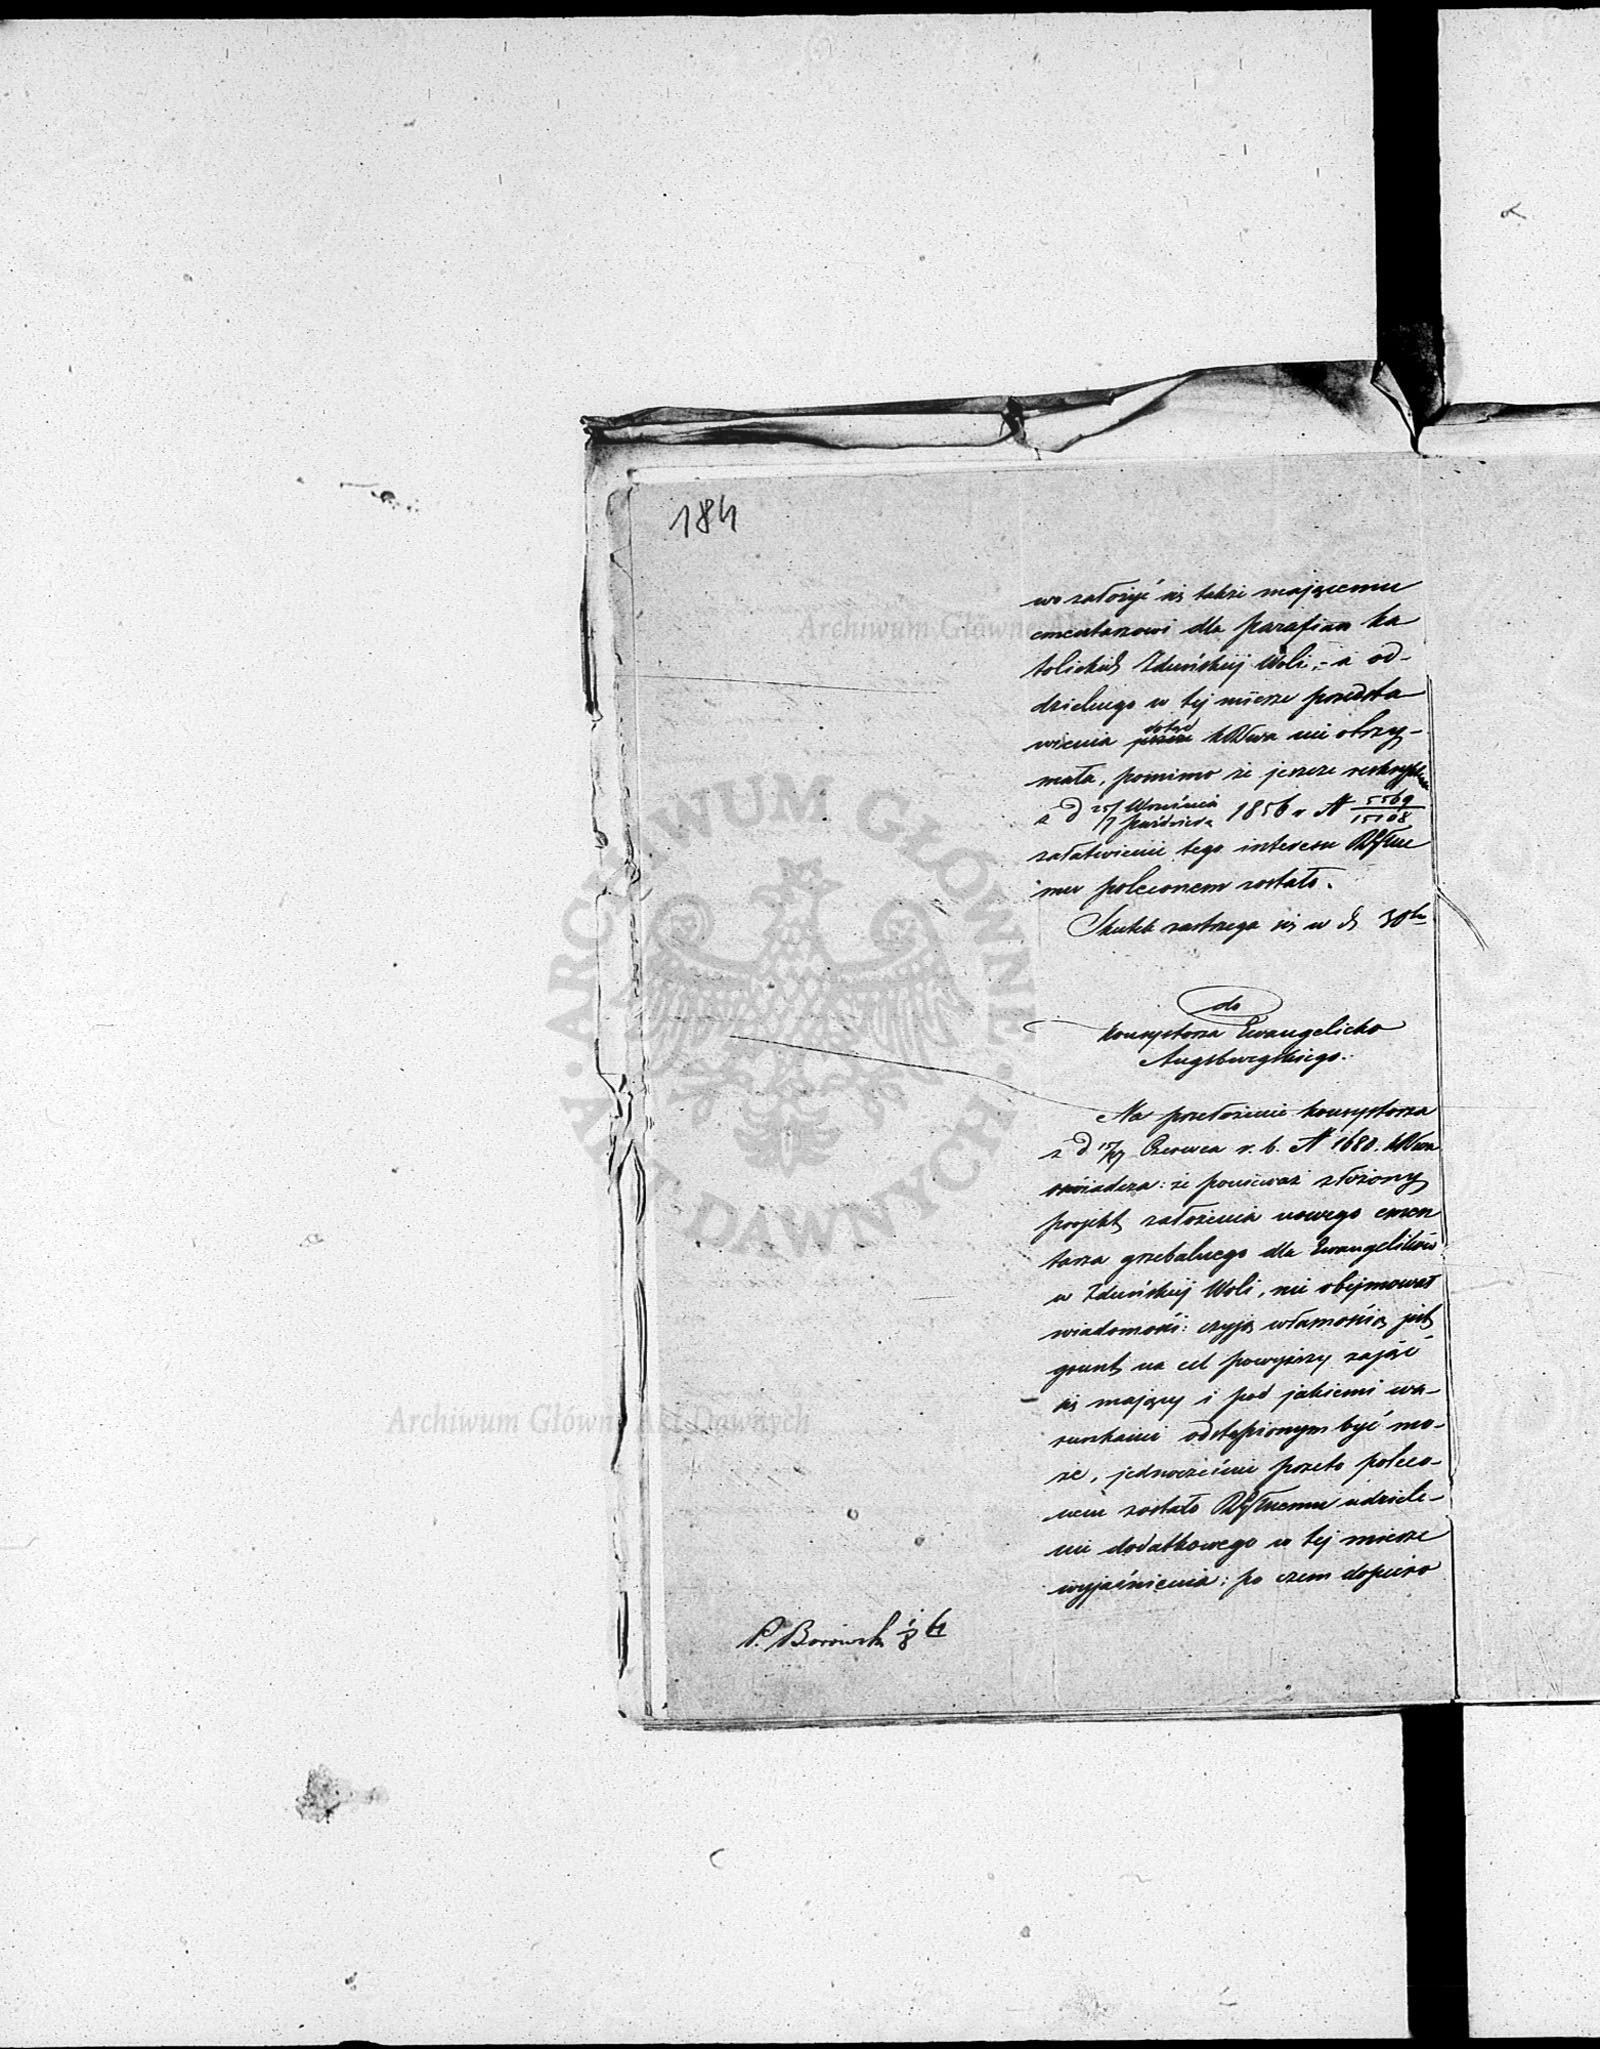 184
wo założyć się także mającemu
cmentarzowi dla parafian ka
tolickich Zduńskiej Woli, - a od-
dzielnego w tej mierze przedsta
wienia dotąd KRSwa nie otrzy-
mała, pomimo że jeszcze reskryptem
z d 25/7 Września/Paździer. 1856 r N 5569/15108
załatwienie tego interesu
mu poleconem zostało.
Skutek zastrzega się w d. 30tu
do
Konsystorza Ewangelicko
Augsburgskiego.
Na przełożenie Konsystorza
z d 15/27 Czerwca r. b. N 1680. KRSwa
oświadcza: że ponieważ złożony
projekt założenia nowego cmen
tarza grzebalnego dla Ewangelików
w Zduńskiej Woli, nie obejmował
wiadomości: czyją własnością jest
grunt na cel powyższy zająć
się mający i pod jakiemi wa-
runkami odstąpionym być mo-
że, jednocześnie przeto poleco-
nem zostało udziele-
nie dodatkowego w tej mierze
wyjaśnienia; po czem dopiero
P. Borowski 1/8
Archiwum Główne Akt Dawnych
ARCHIWUM GŁÓWNE AKT DAWNYCH
Archiwum Główne Akt Dawnych